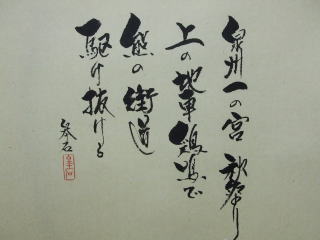 泉州一の宮 秋祭り
上の地車 鶏鳴で
熊の街道
駆け抜ける